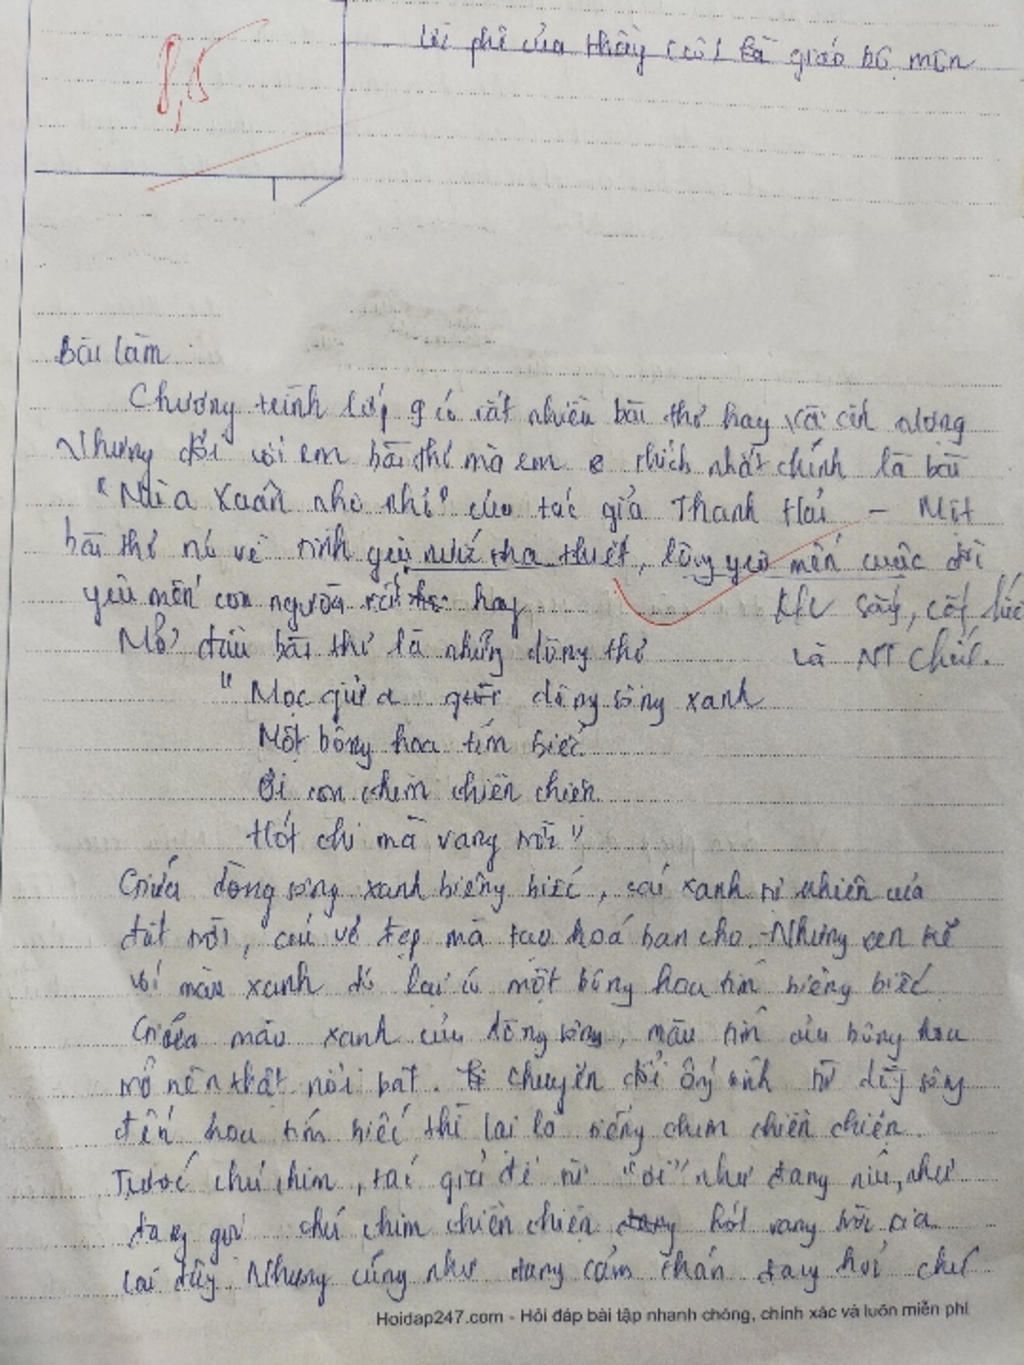 8,5
Lời phê của thầy (cô) là giáo bộ môn
Bài làm
Chương trình lớp 9 có rất nhiều bài thơ hay và
Nhưng đối với em bài thơ mà em e thích nhất chính là bài
"Mùa xuân nho nhỏ" của tác giả Thanh Hải - Một
bài thơ nó về tình yêu tha thiết, lòng yêu mến cuộc đời
yêu mến con người rất hay
Mở đầu bài thơ là những dòng thơ
là NT
" Mọc giữa dòng sông xanh
Một bông hoa tím biếc
Ơi con chim chiền chiện
Hót chi mà vang trời "
Giữa dòng sông xanh biêng biếc, cái xanh tự nhiên của
đất trời, cái vẻ đẹp mà tạo hoá ban cho. Nhưng xen kẽ
với màu xanh đó lại có một bông hoa tím biêng biếc
Giữa màu xanh của dòng sông, màu tím của bông hoa
trở nên thật nổi bật. chuyển đổi ống kính từ dòng sông
đến hoa tím biếc thì lại là tiếng chim chiền chiện.
Trước chú chim, tác giả để từ "ơi" như đang níu, như
đang gọi chú chim chiền chiện đang hót vang trời kia
lại đây. Nhưng cũng như đang cảm thán đang hỏi chú
Hoidap247.com - Hỏi đáp bài tập nhanh chóng, chính xác và luôn miễn phí